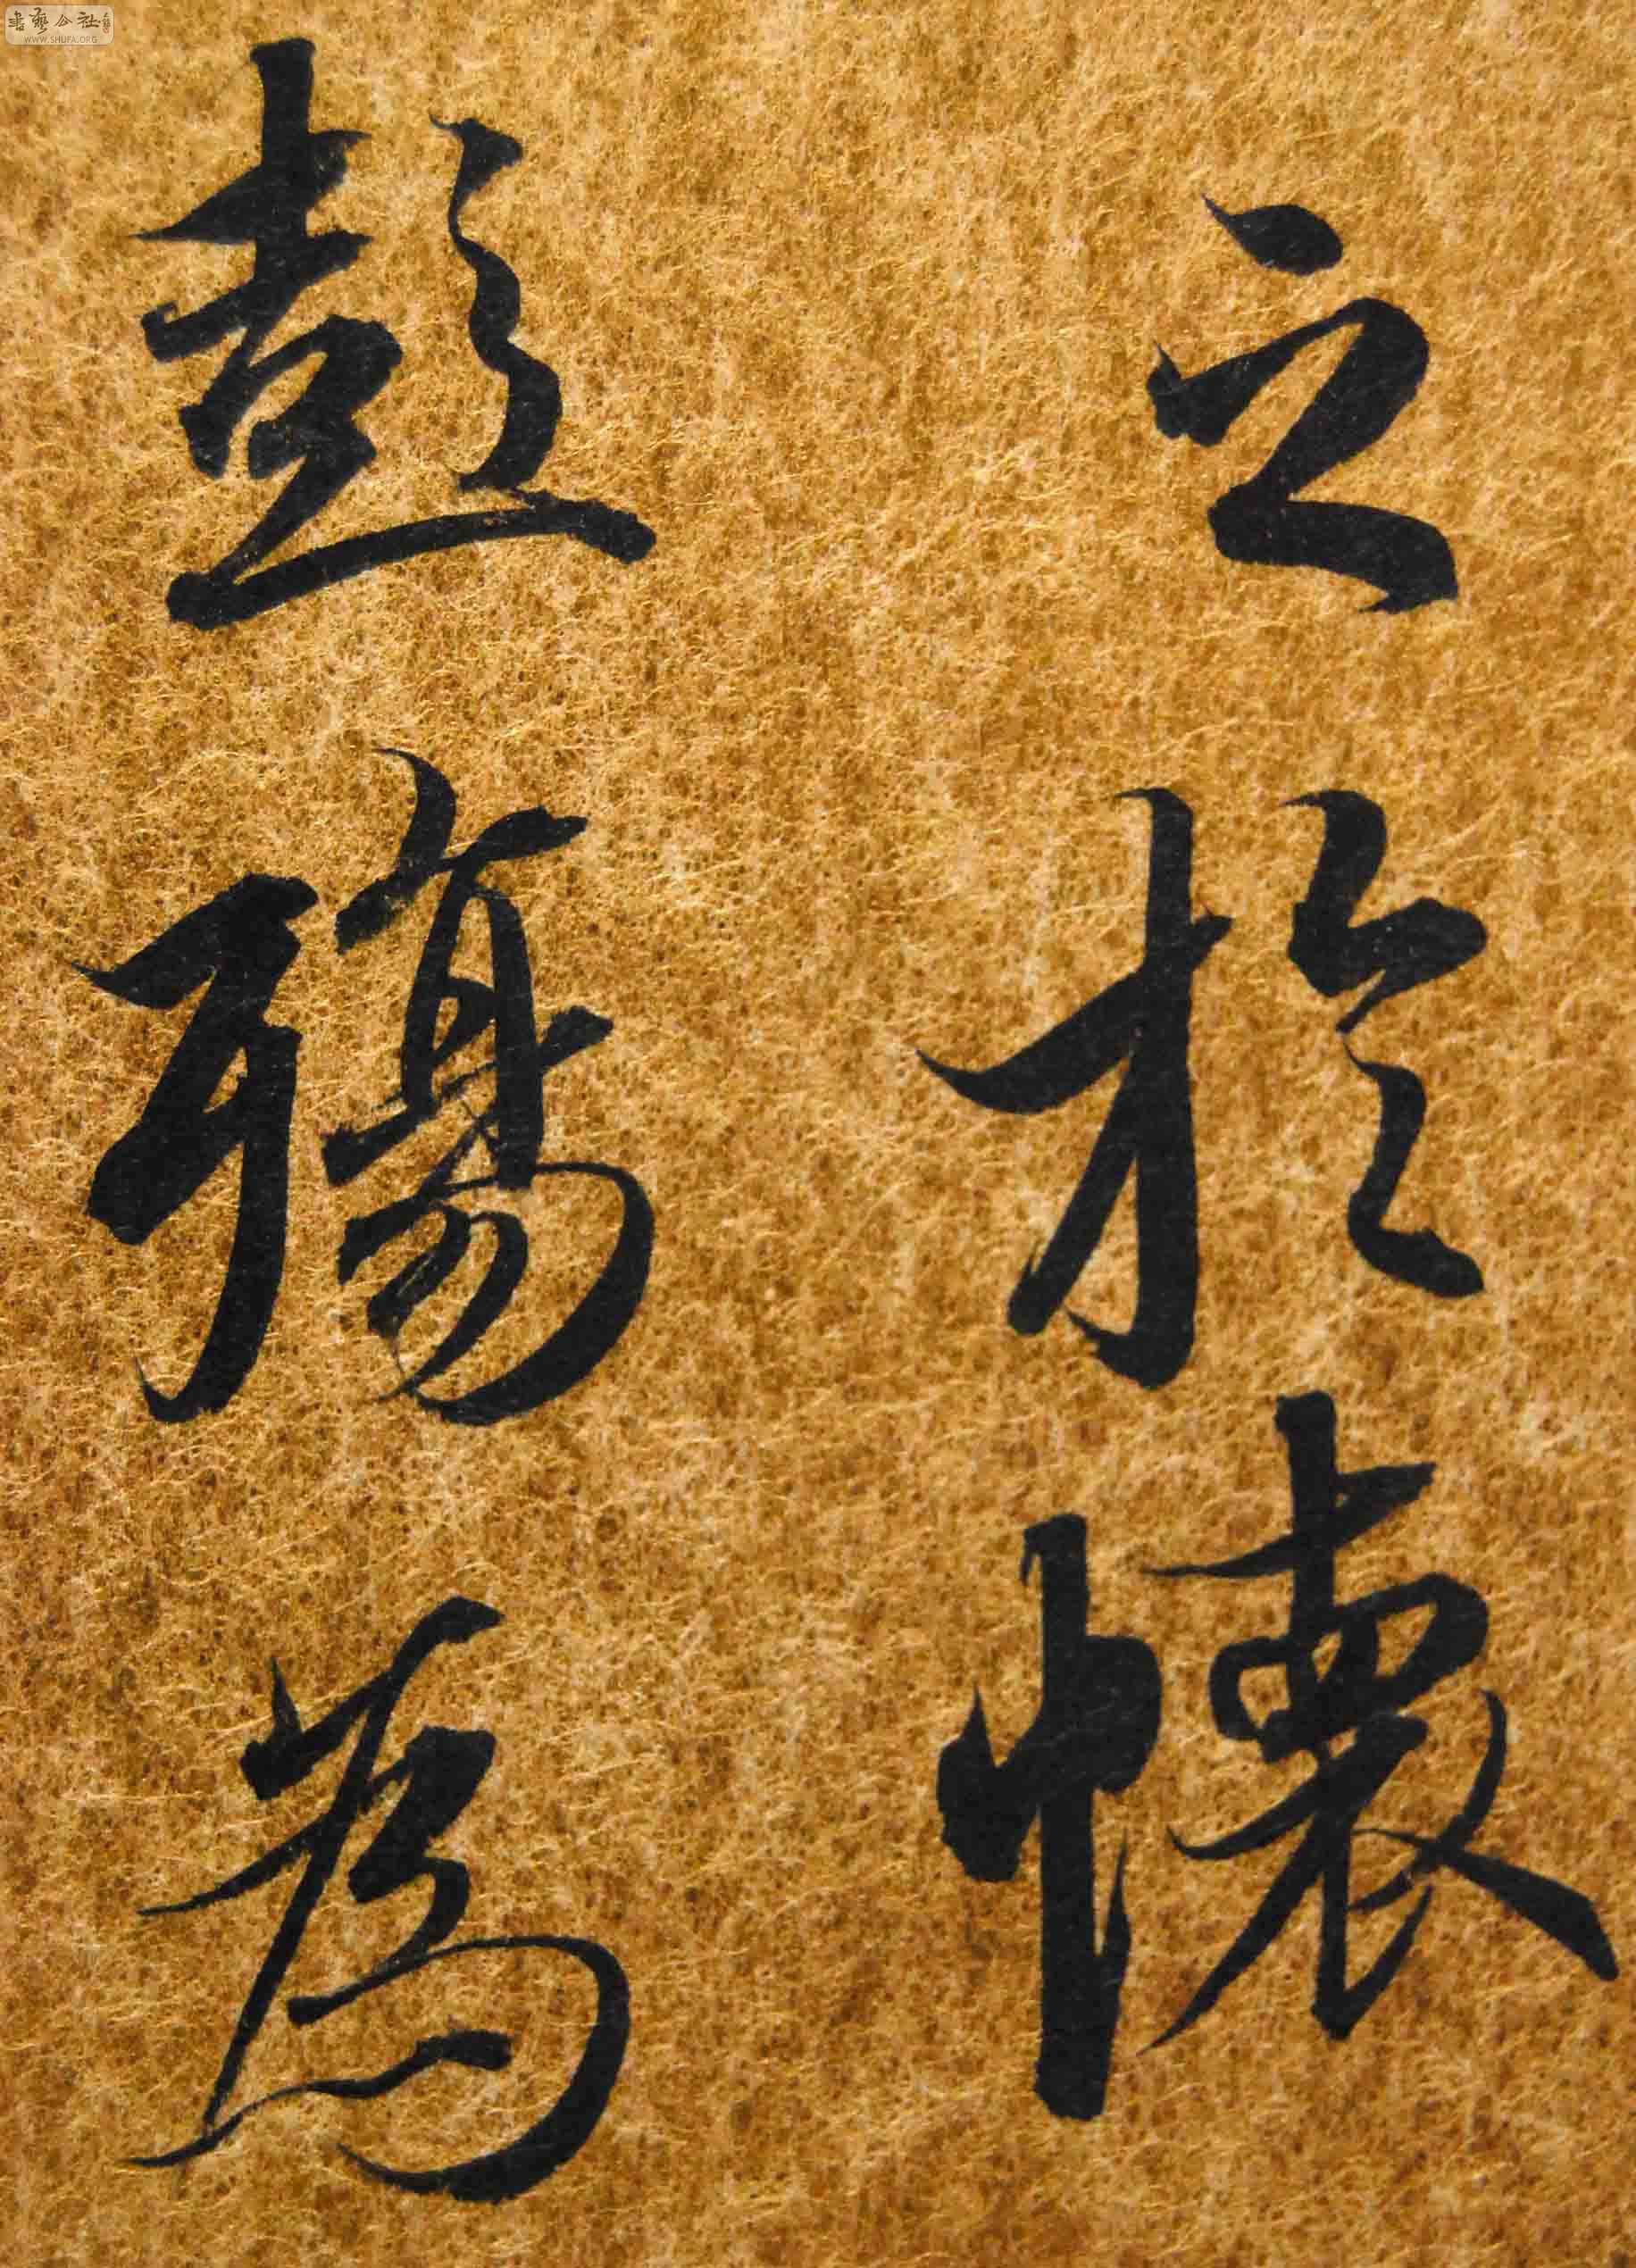 之於懷
彭殤為
書藝公社
WWW.SHUFA.ORG